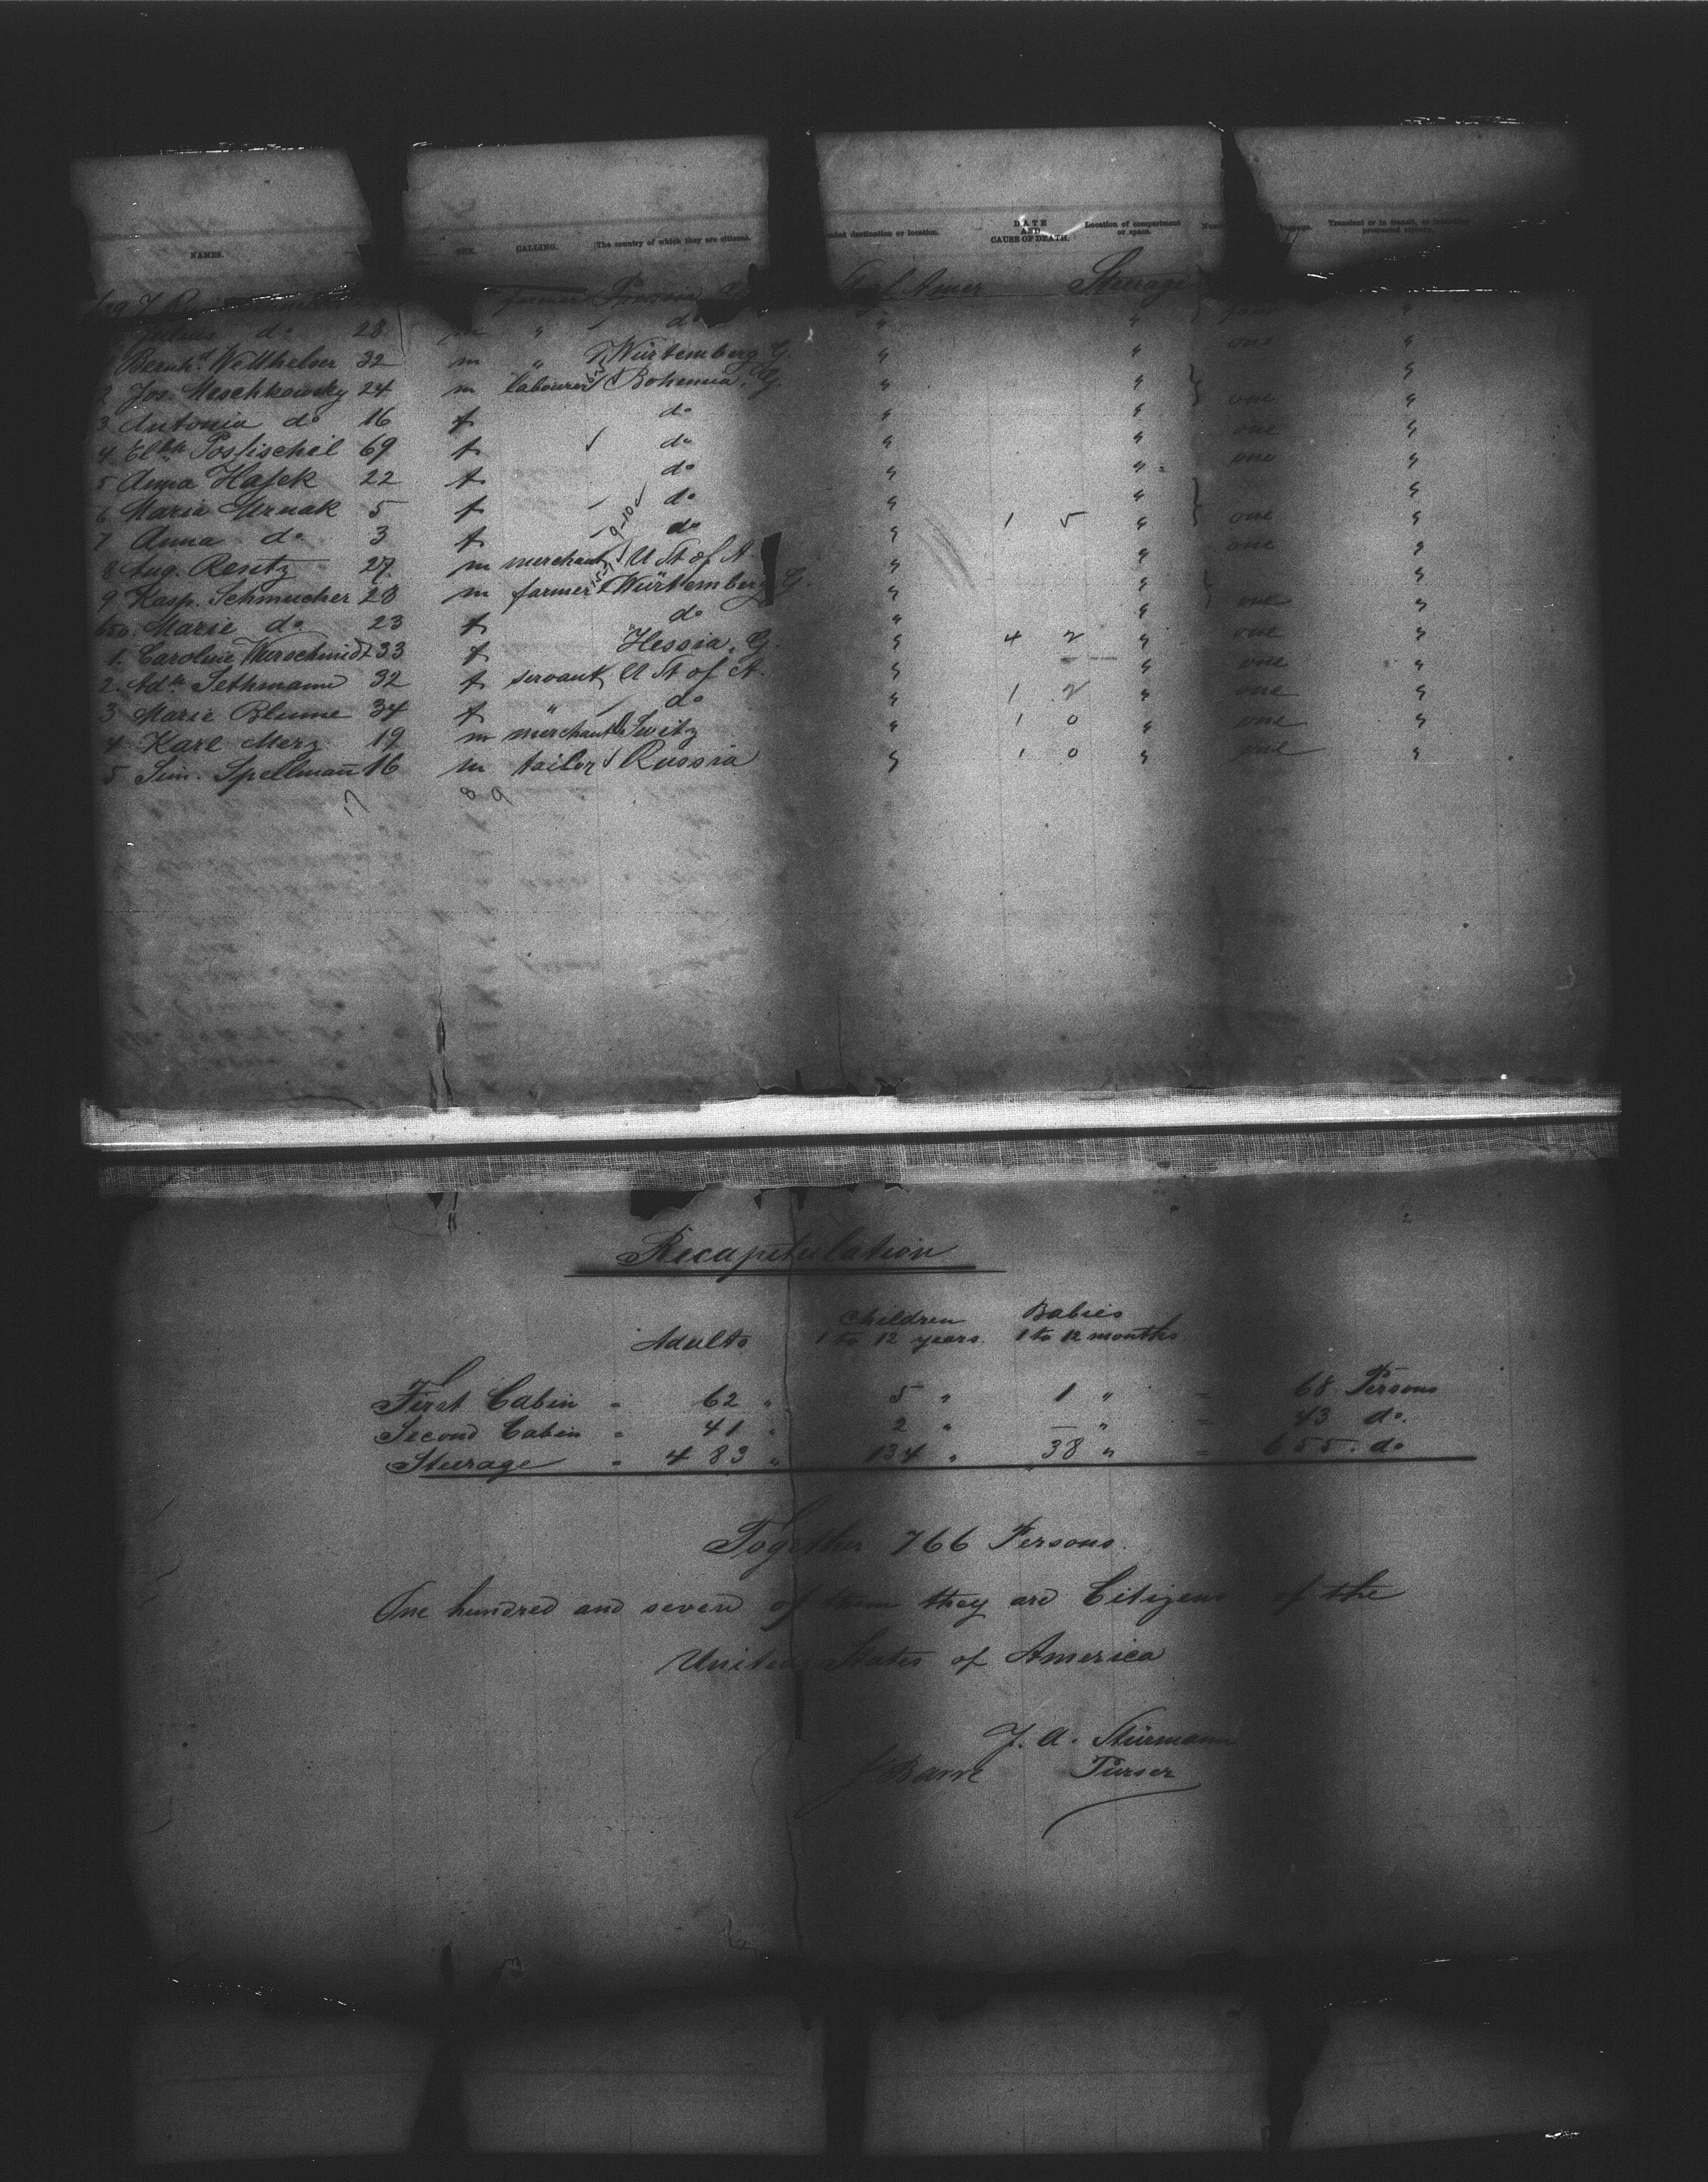 NAMES. SEX. CALLING. The country of which they are citizens. destination or location. DATE AND CAUSE OF DEATH. Location of compartment or space. Transient or in transit, or
farmer Steerage
do 28 m " do "
1 Bernhd. 32 m " Würtemberg G. " " one "
2 Jos. Meschkowsky 24 m labourer Bohemia, G. " " one "
3 Antonia do 16 f do " " one "
4 Elbth Possischil 69 f do " " one "
5 Anna Hasek 22 f do " " "
6 Maria Mrnak 5 f do " 1 5 " one "
7 Anna do 3 f do " " one "
8 Aug. Rentz 27 m merchant U St of A. " " "
9 Kasp. Schmucher 28 m farmer Würtemberg G. " " one "
650. Marie do 23 f do " 4 2 " one "
1. Caroline Wurschmidt 33 f Hessia, G. " " one "
2. Adle Sethmann 32 f servant U St of A. " 1 2 " one "
3 Marie Blume 34 f " do " 1 0 " one "
4 Karl Merz 19 m merchant Switz " 1 0 " one "
5 Sim. Spellmann 16 m tailor Russia " " "
17 8 9
Recapitulation
Children Babies
Adults 1 to 12 years. 1 to 12 months
First Cabin = 62 " 5 " 1 " = 68 Persons
Second Cabin = 41 " 2 " — " = 43 do.
Steerage = 483 " 134 " 38 " = 655. do
Together 766 Persons.
One hundred and seven of them they are Citizens of the
United States of America
J. A. Stürmann
Purser